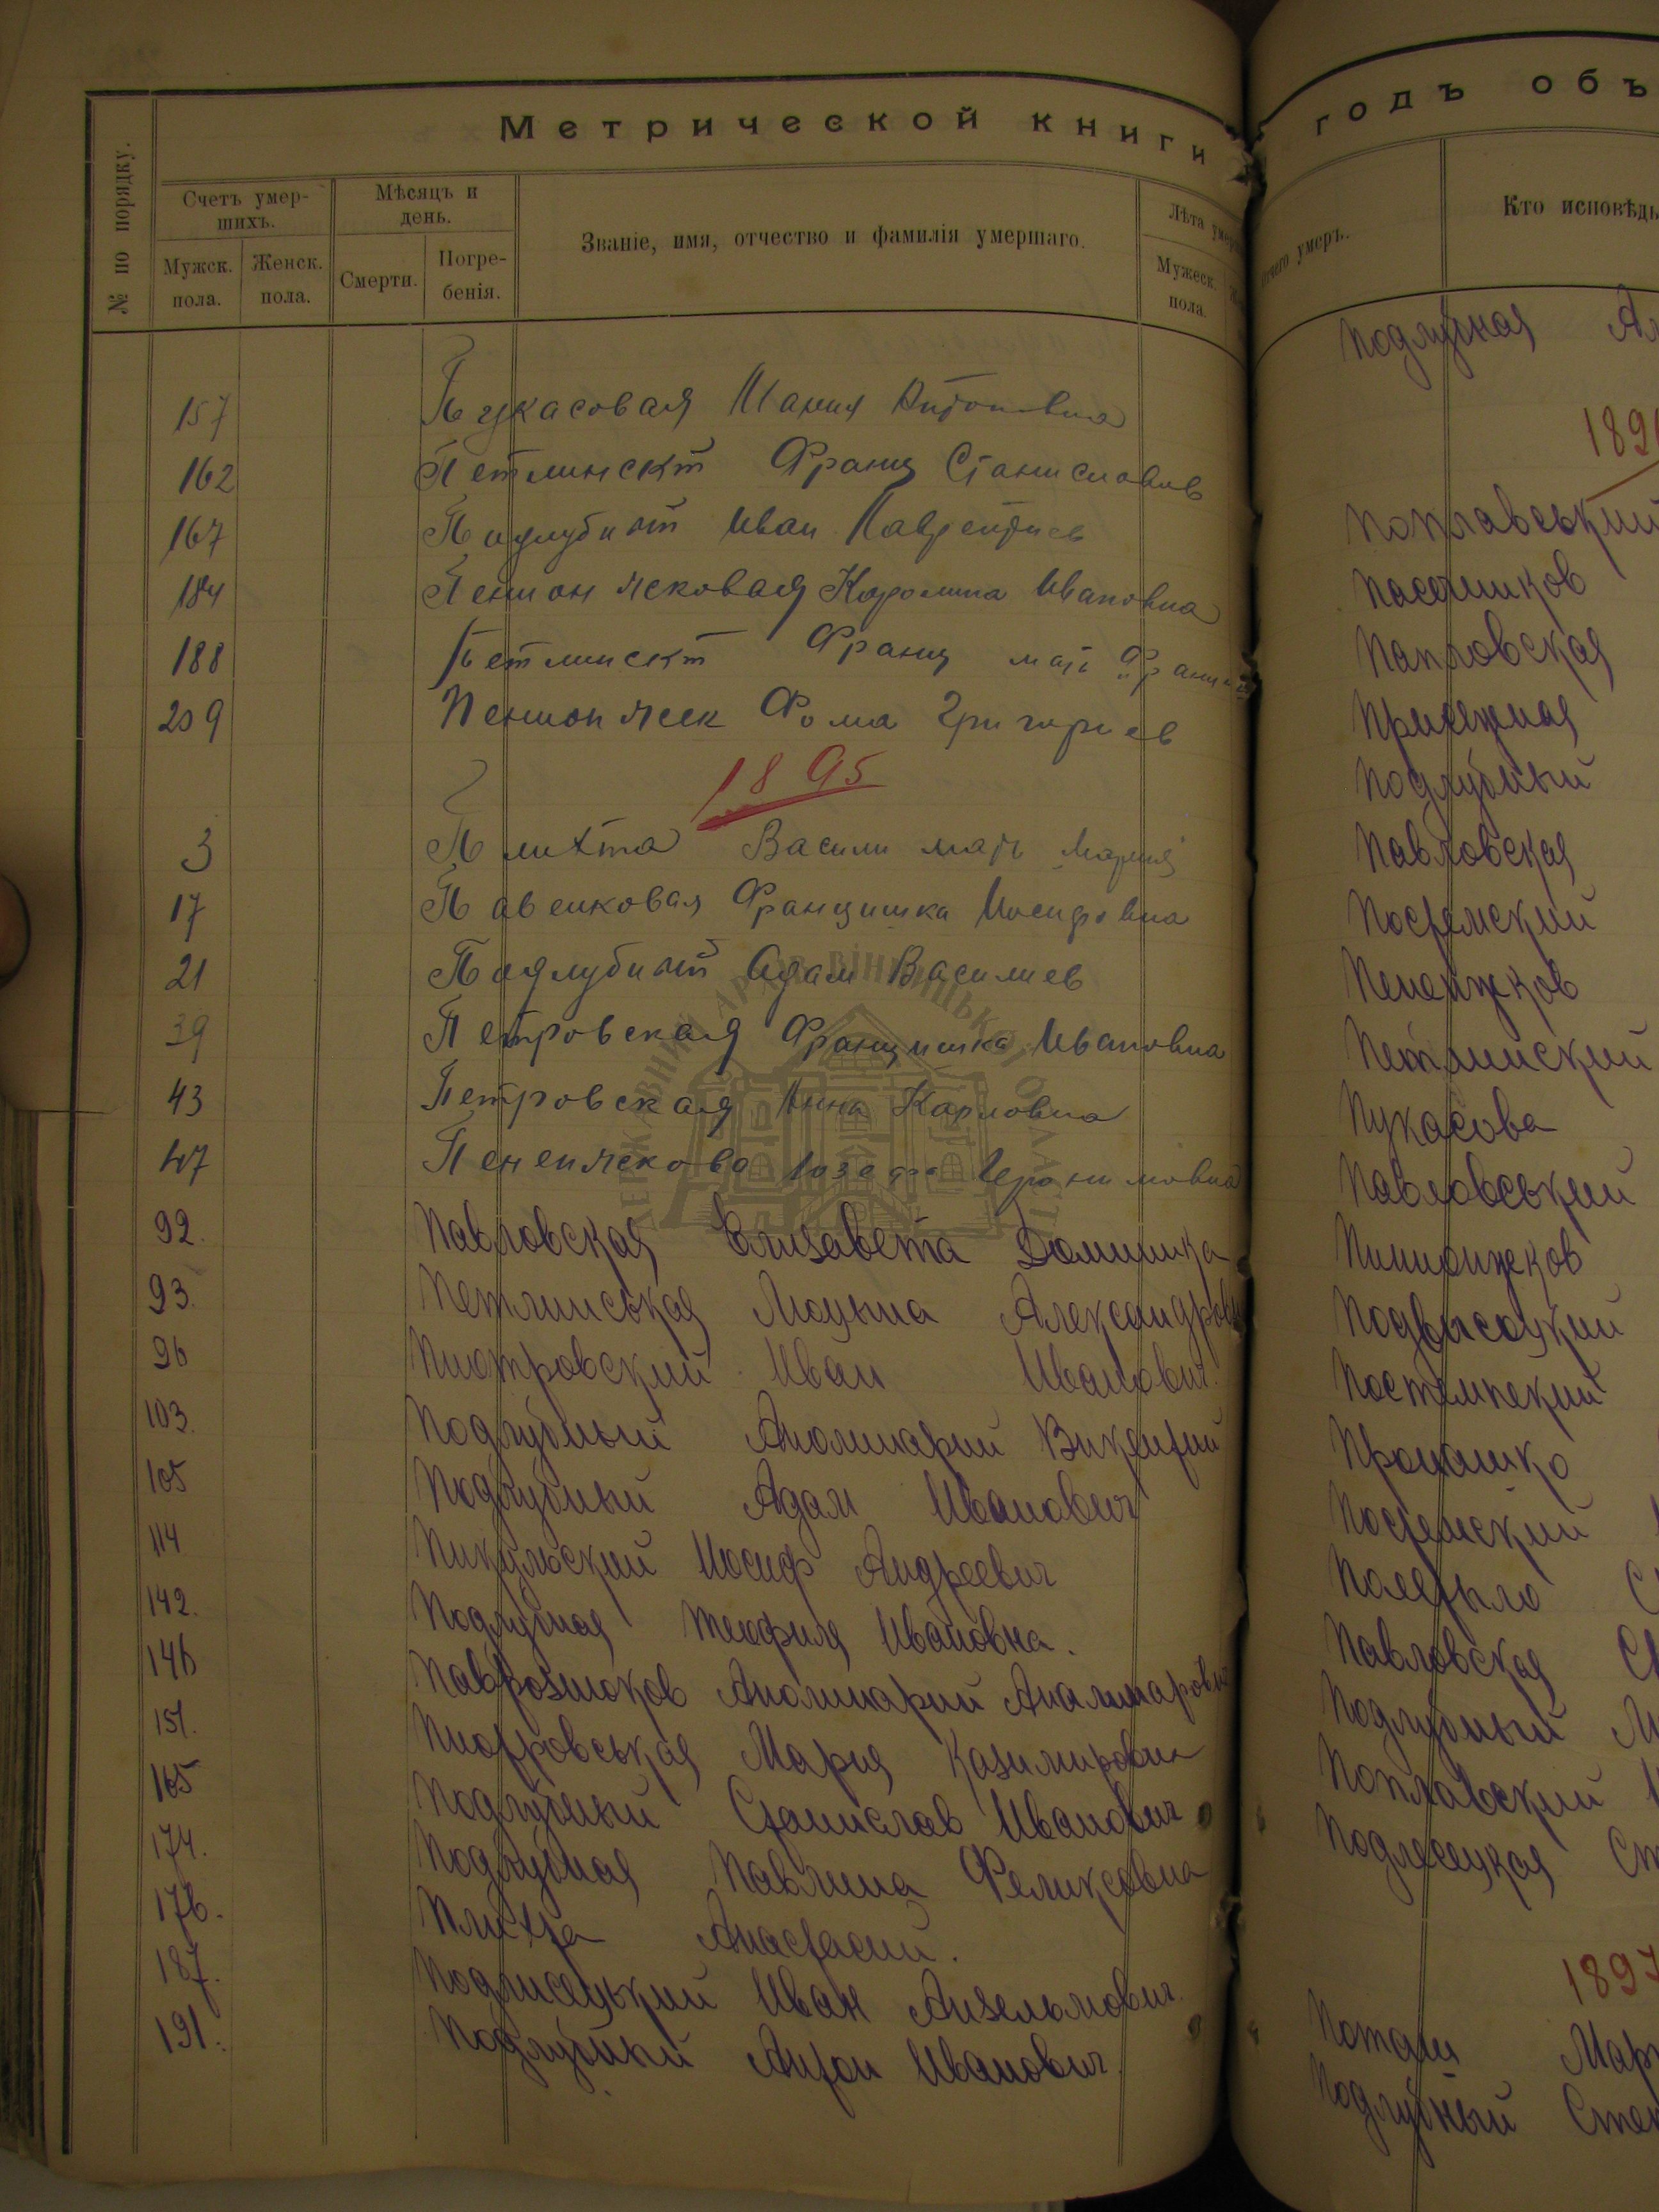 Метрической книги
№ по порядку.
Счетъ умер-
шихъ.
Мужск.
пола.
Женск.
пола.
Мѣсяцъ и
день.
Смерти.
Погре-
бенія.
Званіе, имя, отчество и фамилія умершаго.
Лѣта
Мужеск.
пола.
157 Пукасовая Мания Антоновна
162 Петлинскій Франц Станиславов
167 Подлубный Иван Лаврентиев
184 Каролина Ивановна
188 Петлинскій Франц мать
209 Фома Григориев
1895
3 Плихта Васили мать Мария
17 Францишка Иосифовна
21 Подлубный Адам Василиев
39 Петровская Францишка Ивановна
43 Петровская Анна Карловна
47 Юзефа Иеронимовна
92. Павловская Елизавета Доминика
93. Петлинськая Александров
96 Пиотровский Иван Иванович.
103. Подлубный Аполинарий Викентий
105 Подлубный Адам Иванович
114 Пикульский Иосиф Андреевич
142. Подлубная Теофиля Ивановна.
146 Аполинарий Аполинарович
151. Пиотровськая Мария Казимировна
165 Подлубный Станислав Иванович
174. Подлубная Павлина Феликсовна
176. Плихта Анастасий.
187. Подлисецький Иван Анзельмович.
191. Подлубный Антон Иванович.
годъ объ
умеръ.
Кто исповѣды
Подлубная
189
Поплавський
Пасечников
Павловская
Подлубный
Павловская
Постемский
Петлинский
Пукасова
Павловський
Подвысоцкий
Постемпский
Постемский
Павловская
Подлубный
Поплавский
Подлесецкая
1897
Поташ Мар
Подлубный Степ